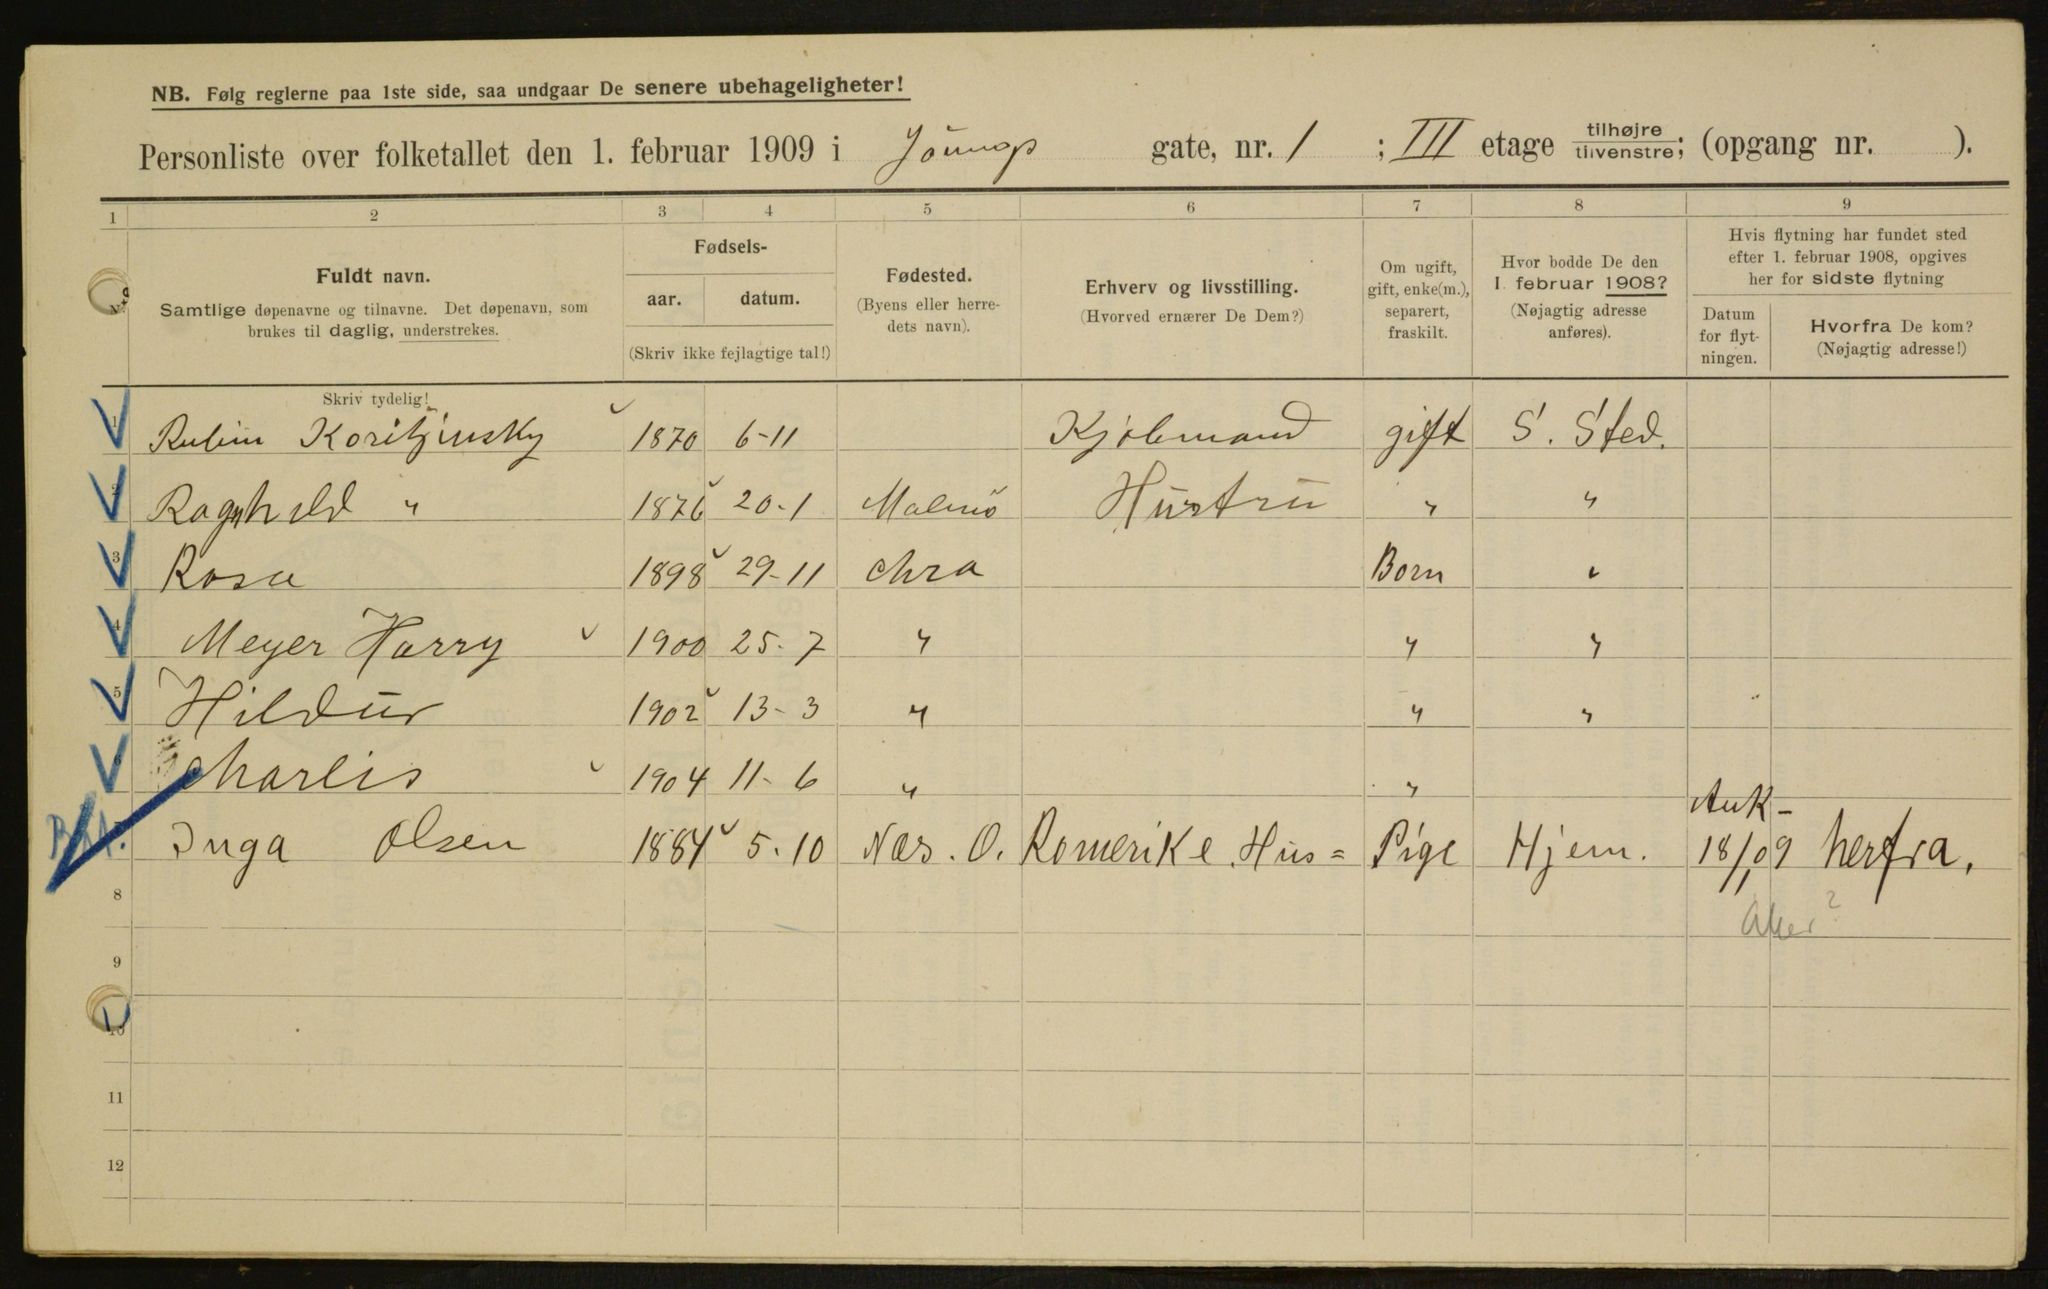 NB. Følg reglerne paa 1ste side, saa undgaar De senere ubehageligheter!
Personliste over folketallet den 1. februar 1909 i Youngs gate, nr. 1 ; III etage tilhøjre tilvenstre; (opgang nr. ).
1 2 3 4 5 6 7 8 9
Fuldt navn.
Samtlige døpenavne og tilnavne. Det døpenavn, som
brukes til daglig, understrekes.
Fødsels-
aar. datum.
(Skriv ikke fejlagtige tal!)
Fødested.
(Byens eller herre-
dets navn).
Erhverv og livsstilling.
(Hvorved ernærer De Dem?)
Om ugift,
gift, enke(m.),
separert,
fraskilt.
Hvor bodde De den
1. februar 1908?
(Nøjagtig adresse
anføres).
Hvis flytning har fundet sted
efter 1. februar 1908, opgives
her for sidste flytning
Datum
for flyt-
ningen.
Hvorfra De kom?
(Nøjagtig adresse!)
Skriv tydelig!
1 Rubin Koritzinsky 1870 6-11 Kjøbmand gift S. Sted.
2 Ragnhild " 1876 20-1 Malmö Hustru " "
3 Rosa 1898 29-11 Chra Born "
4 Meyer Harry 1900 25-7 " " "
5 Hildur 1902 13-3 " " "
6 Charlis 1904 11-6 " "
Ank-
7 Inga Olsen 1884 5-10 Næs. O. Romerike. Hus= Pige Hjem. 18/1 09 herfra.
8
Aker?
9
10
11
12